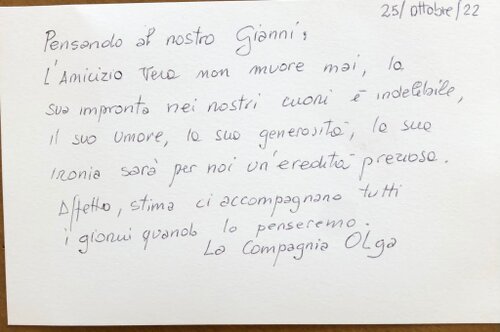 25/ottobre/22
Pensando al nostro Gianni:
L'Amicizia Vera non muore mai, la
sua impronta nei nostri cuori è indelebile,
il suo umore, la sua generosità, la sua
Ironia sarà per noi un'eredità preziosa.
Affetto, stima ci accompagnano tutti
i giorni quando lo penseremo.
La Compagnia OLga